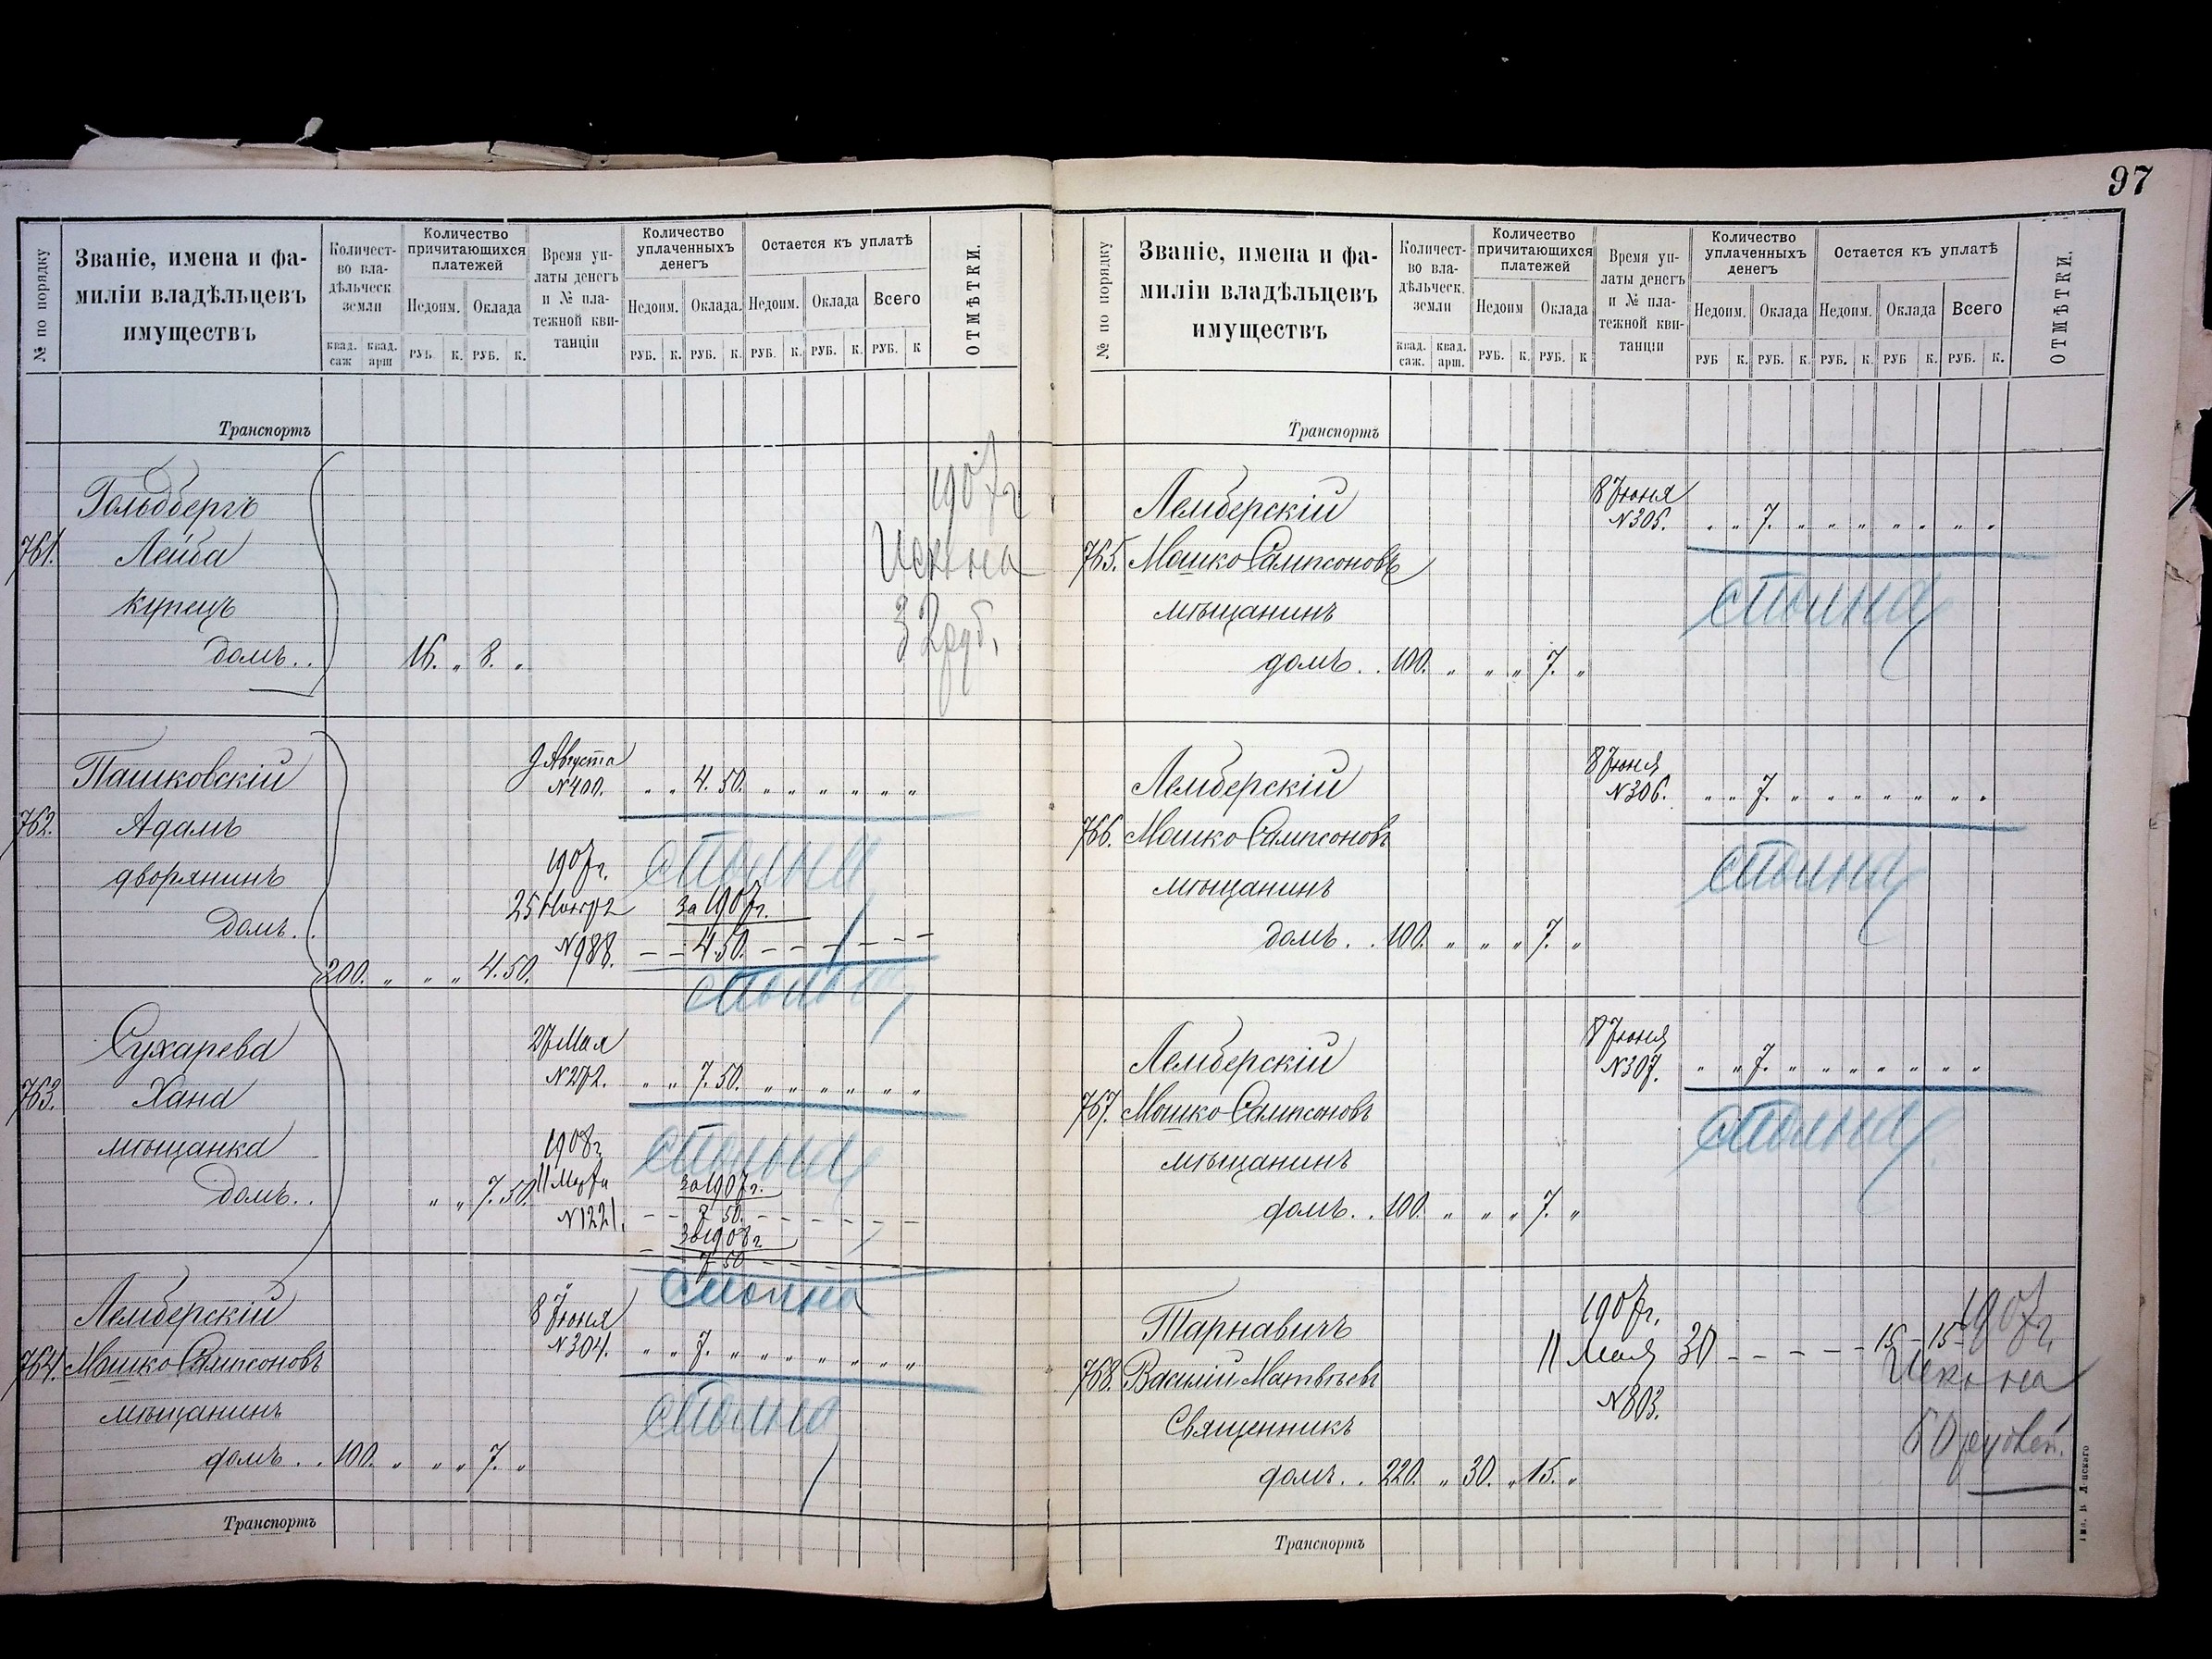 97
№ по порядку
Званіе, имена и фа-
миліи владѣльцевъ
имуществъ
Количест-
во вла-
дѣльческ.
земли
квад. саж квад. арш
Количество
причитающихся
платежей
Недоим. Оклада
РУБ. К. РУБ. К.
Время уп-
латы денегъ
и № пла-
тежной кви-
танціи
Количество
уплаченныхъ
денегъ
Недоим. Оклада.
РУБ. К. РУБ. К.
Остается къ уплатѣ
Недоим. Оклада Всего
РУБ. К. РУБ. К. РУБ. К
ОТМѢТКИ.
Транспортъ
Гольдбергъ
761. Лейба
купецъ
домъ.. 16. „ 8. „
1907г
на
32 руб.
Пашковскій
762. Адамъ
дворянинъ
домъ..
200. „ „ „ 4.50.
9 Августа
№400. „ „ 4.50. „ „ „ „ „ „
1907г.
25 Ноября за 1907г.
№988. – – 4.50. – – – – – –
Сухарева
763. Хана
мѣщанка
домъ.. „ „ 7.50.
27 Мая
№272. „ „ 7.50. „ „ „ „ „ „
1908г
11 Марта за 1907г.
№1221. – – 7 50. – – – – – –
За 1908г
7 50
сполна
Лемберскій
764. Мошко Сампсоновъ
мѣщанинъ
домъ.. 100. „ „ „ 7. „
8 Іюня
№304. „ „ 7. „ „ „ „ „ „ „
сполна
Транспортъ
№ по порядку
Званіе, имена и фа-
миліи владѣльцевъ
имуществъ
Количест-
во вла-
дѣльческ.
земли
квад. саж. квад. арш.
Количество
причитающихся
платежей
Недоим Оклада
РУБ. К. РУБ. К
Время уп-
латы денегъ
и № пла-
тежной кви-
танціи
Количество
уплаченныхъ
денегъ
Недоим. Оклада
РУБ К. РУБ. К.
Остается къ уплатѣ
Недоим. Оклада Всего
РУБ. К. РУБ К. РУБ. К.
ОТМѢТКИ.
Транспортъ
Лемберскій
765. Мошко Сампсоновъ
мѣщанинъ
домъ.. 100. „ „ „ 7. „
8 Іюня
№305. „ „ 7. „ „ „ „ „ „ „
сполна
Лемберскій
766. Мошко Сампсоновъ
мѣщанинъ
домъ.. 100. „ „ „ 7. „
8 Іюня
№306. „ „ 7. „ „ „ „ „ „ „
сполна
Лемберскій
767. Мошко Сампсоновъ
мѣщанинъ
домъ.. 100. „ „ „ 7. „
8 Іюня
№307. „ „ 7. „ „ „ „ „ „ „
сполна
Тарнавичъ
768. Василій Матвѣевъ
Священникъ
домъ.. 220. „ 30. „ 15. „
1907г.
11 Мая 30 – – – – – 15 – 15 –
№803.
1907г.
на
Транспортъ